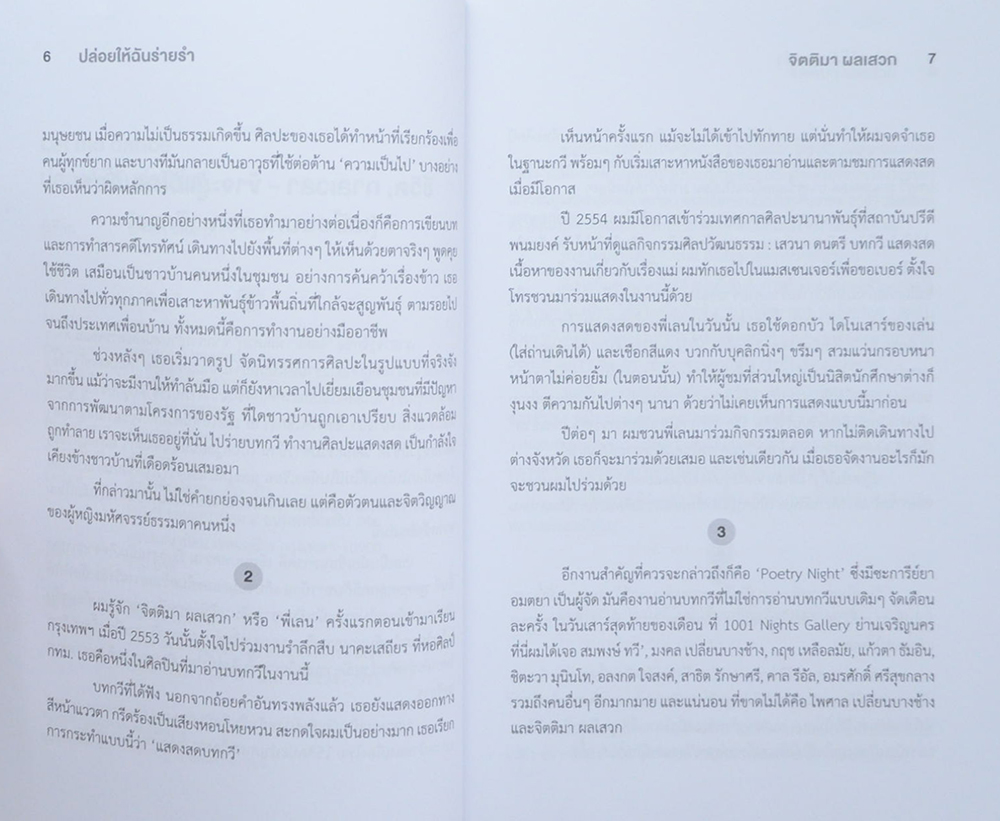 6 ปล่อยให้ฉันร่ายรำ
มนุษยชน เมื่อความไม่เป็นธรรมเกิดขึ้น ศิลปะของเธอได้ทำหน้าที่เรียกร้องเพื่อ
คนผู้ทุกข์ยาก และบางทีมันกลายเป็นอาวุธที่ใช้ต่อต้าน ‘ความเป็นไป’ บางอย่าง
ที่เธอเห็นว่าผิดหลักการ
ความชำนาญอีกอย่างหนึ่งที่เธอทำมาอย่างต่อเนื่องก็คือการเขียนบท
และการทำสารคดีโทรทัศน์ เดินทางไปยังพื้นที่ต่างๆ ให้เห็นด้วยตาจริงๆ พูดคุย
ใช้ชีวิต เสมือนเป็นชาวบ้านคนหนึ่งในชุมชน อย่างการค้นคว้าเรื่องข้าว เธอ
เดินทางไปทั่วทุกภาคเพื่อเสาะหาพันธุ์ข้าวพื้นถิ่นที่ใกล้จะสูญพันธุ์ ตามรอยไป
จนถึงประเทศเพื่อนบ้าน ทั้งหมดนี้คือการทำงานอย่างมืออาชีพ
ช่วงหลังๆ เธอเริ่มวาดรูป จัดนิทรรศการศิลปะในรูปแบบที่จริงจัง
มากขึ้น แม้ว่าจะมีงานให้ทำล้นมือ แต่ก็ยังหาเวลาไปเยี่ยมเยือนชุมชนที่มีปัญหา
จากการพัฒนาตามโครงการของรัฐ ที่ใดชาวบ้านถูกเอาเปรียบ สิ่งแวดล้อม
ถูกทำลาย เราจะเห็นเธออยู่ที่นั่น ไปร่ายบทกวี ทำงานศิลปะแสดงสด เป็นกำลังใจ
เคียงข้างชาวบ้านที่เดือดร้อนเสมอมา
ที่กล่าวมานั้น ไม่ใช่คำยกย่องจนเกินเลย แต่คือตัวตนและจิตวิญญาณ
ของผู้หญิงมหัศจรรย์ธรรมดาคนหนึ่ง
2
ผมรู้จัก ‘จิตติมา ผลเสวก’ หรือ ‘พี่เลน’ ครั้งแรกตอนเข้ามาเรียน
กรุงเทพฯ เมื่อปี 2553 วันนั้นตั้งใจไปร่วมงานรำลึกสืบ นาคะเสถียร ที่หอศิลป์
กทม. เธอคือหนึ่งในศิลปินที่มาอ่านบทกวีในงานนี้
บทกวีที่ได้ฟัง นอกจากถ้อยคำอันทรงพลังแล้ว เธอยังแสดงออกทาง
สีหน้าแววตา กรีดร้องเป็นเสียงหอนโหยหวน สะกดใจผมเป็นอย่างมาก เธอเรียก
การกระทำแบบนี้ว่า ‘แสดงสดบทกวี’
จิตติมา ผลเสวก 7
เห็นหน้าครั้งแรก แม้จะไม่ได้เข้าไปทักทาย แต่นั่นทำให้ผมจดจำเธอ
ในฐานะกวี พร้อมๆ กับเริ่มเสาะหาหนังสือของเธอมาอ่านและตามชมการแสดงสด
เมื่อมีโอกาส
ปี 2554 ผมมีโอกาสเข้าร่วมเทศกาลศิลปะนานาพันธุ์ที่สถาบันปรีดี
พนมยงค์ รับหน้าที่ดูแลกิจกรรมศิลปวัฒนธรรม : เสวนา ดนตรี บทกวี แสดงสด
เนื้อหาของงานเกี่ยวกับเรื่องแม่ ผมทักเธอไปในแมสเซนเจอร์เพื่อขอเบอร์ ตั้งใจ
โทรชวนมาร่วมแสดงในงานนี้ด้วย
การแสดงสดของพี่เลนในวันนั้น เธอใช้ดอกบัว ไดโนเสาร์ของเล่น
(ใส่ถ่านเดินได้) และเชือกสีแดง บวกกับบุคลิกนิ่งๆ ขรึมๆ สวมแว่นกรอบหนา
หน้าตาไม่ค่อยยิ้ม (ในตอนนั้น) ทำให้ผู้ชมที่ส่วนใหญ่เป็นนิสิตนักศึกษาต่างก็
งุนงง ตีความกันไปต่างๆ นานา ด้วยว่าไม่เคยเห็นการแสดงแบบนี้มาก่อน
ปีต่อๆ มา ผมชวนพี่เลนมาร่วมกิจกรรมตลอด หากไม่ติดเดินทางไป
ต่างจังหวัด เธอก็จะมาร่วมด้วยเสมอ และเช่นเดียวกัน เมื่อเธอจัดงานอะไรก็มัก
จะชวนผมไปร่วมด้วย
3
อีกงานสำคัญที่ควรจะกล่าวถึงก็คือ ‘Poetry Night’ ซึ่งมีซะการีย์ยา
อมตยา เป็นผู้จัด มันคืองานอ่านบทกวีที่ไม่ใช่การอ่านบทกวีแบบเดิมๆ จัดเดือน
ละครั้ง ในวันเสาร์สุดท้ายของเดือน ที่ 1001 Nights Gallery ย่านเจริญนคร
ที่นี่ผมได้เจอ สมพงษ์ ทวี’, มงคล เปลี่ยนบางช้าง, กฤช เหลือลมัย, แก้วตา ธัมอิน,
ชิตะวา มุนินโท, อลงกต ใจสงค์, สาธิต รักษาศรี, คาล รีอัล, อมรศักดิ์ ศรีสุขกลาง
รวมถึงคนอื่นๆ อีกมากมาย และแน่นอน ที่ขาดไม่ได้คือ ไพศาล เปลี่ยนบางช้าง
และจิตติมา ผลเสวก